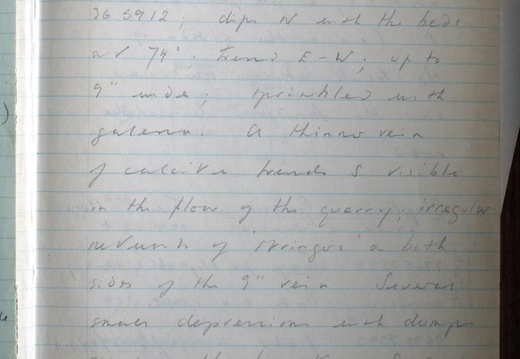 363912; dips N with the beds
at 74°; trend E-W; up to
9" wide; sprinkled with
galena. A thinner vein
of calcite trends S visible
in the floor of the quarry, irregular
network of 'stringers' on both
sides of the 9" vein Several
small depressions with dumps